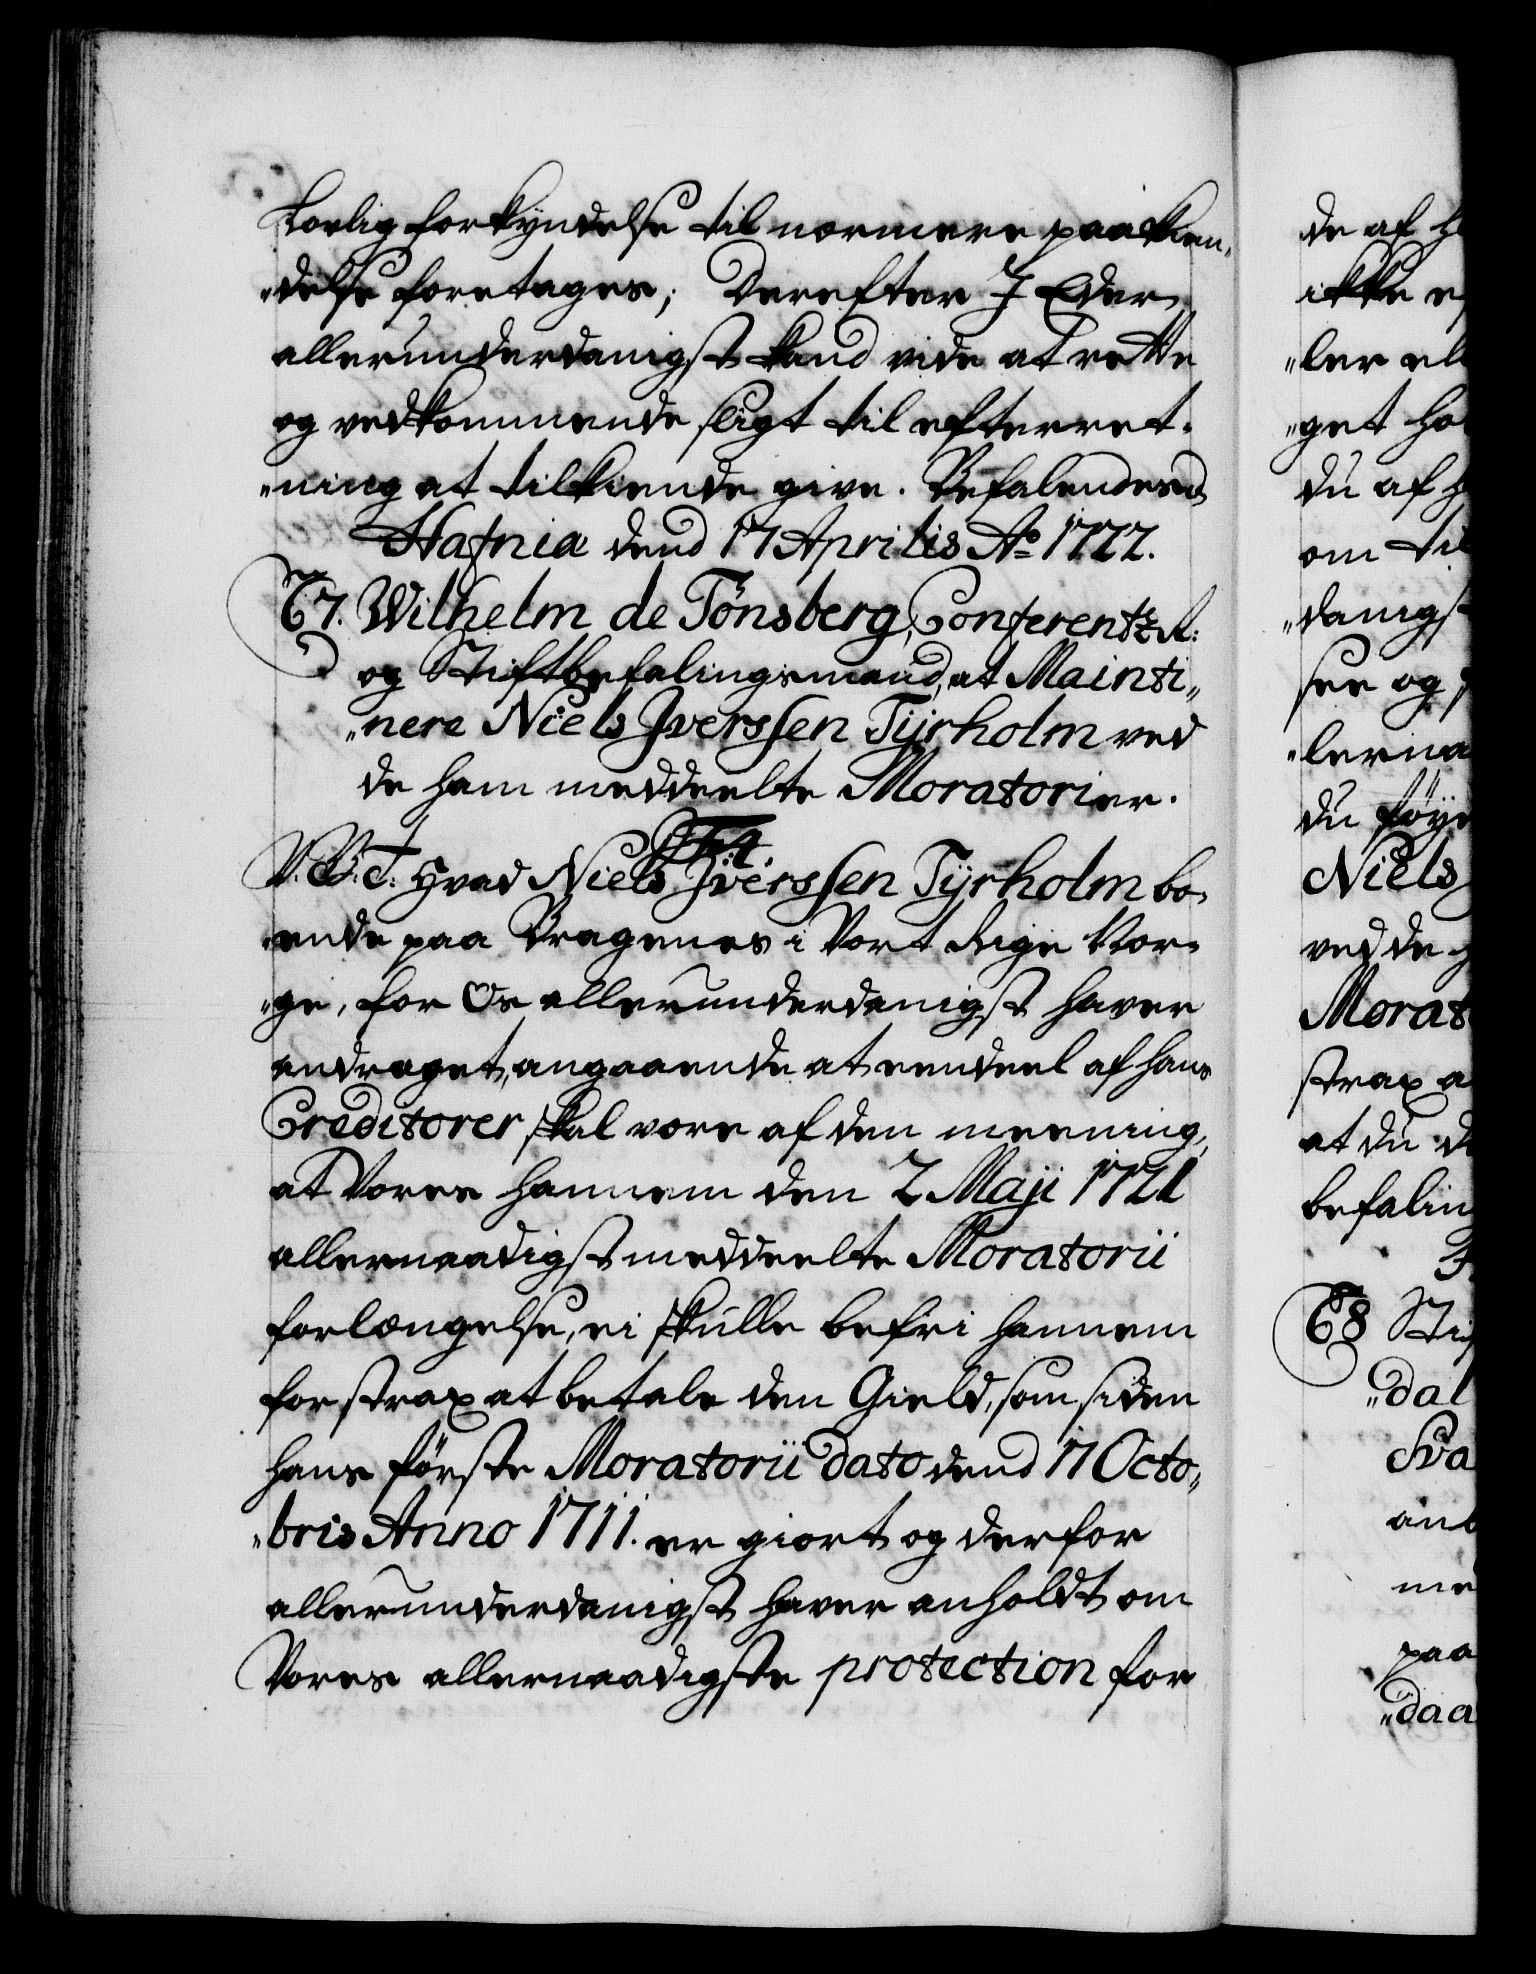 Lovlig forkyndelse til nærmere paakien,,
,,delse foretages; Derefter I Eder
allerunderdanigst kand vide at rette
og vedkommende sligt til efterret,,
,,ning at tilkiende give. Befalendes
Hafnia dend 17 Aprilis Ao 1722.
67. Wilhelm de Tønsberg, Conferentz R:
og Stiftbefalingsmand, at Mainti,,
,,nere Niels Iverssen Tyrholm ved
de ham meddeelte Moratorier.
F:4.
V.G.T: Hvad Niels Iverssen Tyrholm bo,,
,,ende paa Bragenes i Vort Rige Nor,,
,,ge, for Os allerunderdanigst haver
andraget, angaaende at eendeel af hans
Creditorer skal være af den meening,
at Vores hannem den 2 Maji 1721
allernaadigst meddeelte Moratorii
forlængelse, ei skulle befri hannem
for strax at betale den Gield, som siden
hans første Moratorii dato dend 17 Octo,,
,,bris Anno 1711. er giort og derfor
allerunderdanigst haver anholdt om
Vores allernaadigste protection for
de af
ikke
,,ler
,,get
du af
om
,,danigst
see og
,,lerna
du føye
Niels
ved de
Morat
strax
at du
befalin
68 Sti
,,dal
Sva
paa
,,daa